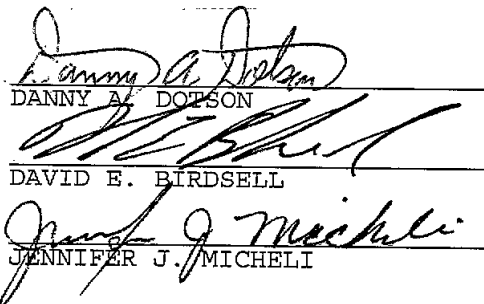 Danny A Dotson
DANNY A. DOTSON
DAVID E. BIRDSELL
Jennifer J Micheli
JENNIFER J. MICHELI